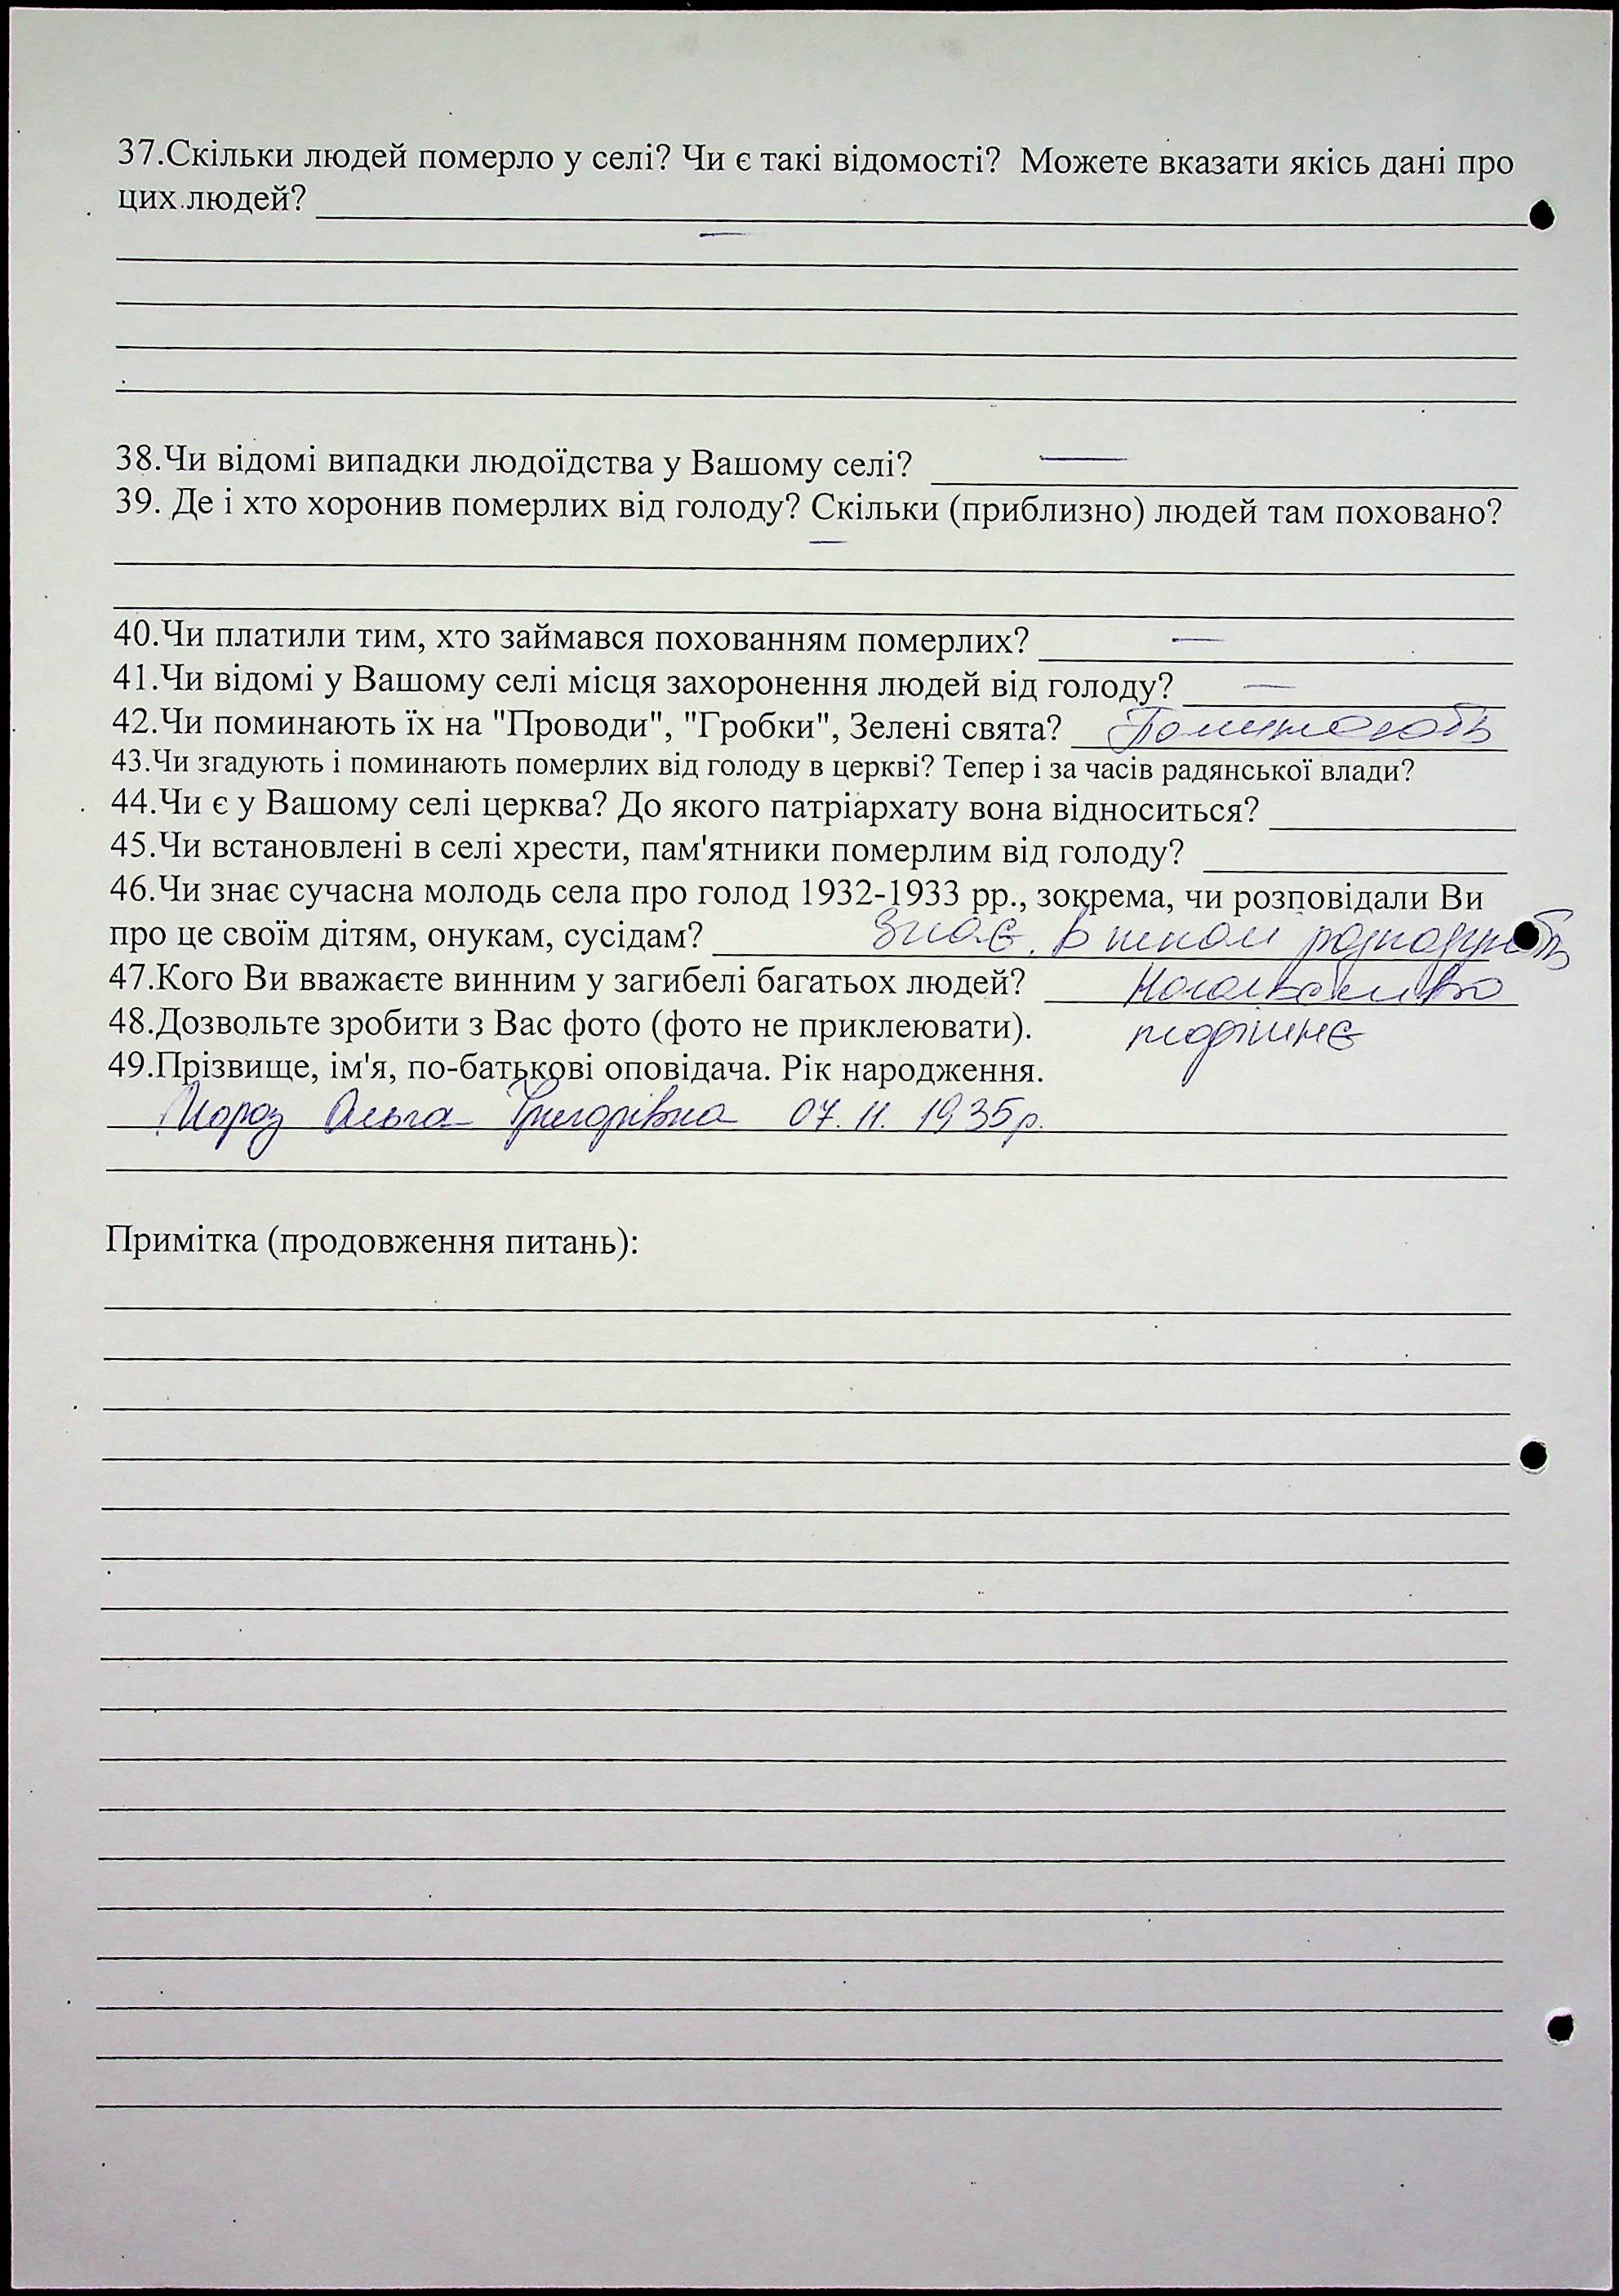 37.Скільки людей померло у селі? Чи є такі відомості? Можете вказати якісь дані про
цих людей?
—
38.Чи відомі випадки людоїдства у Вашому селі? —
39. Де і хто хоронив померлих від голоду? Скільки (приблизно) людей там поховано?
—
40.Чи платили тим, хто займався похованням померлих? —
41.Чи відомі у Вашому селі місця захоронення людей від голоду? —
42.Чи поминають їх на "Проводи", "Гробки", Зелені свята? Поминають
43.Чи згадують і поминають померлих від голоду в церкві? Тепер і за часів радянської влади?
44.Чи є у Вашому селі церква? До якого патріархату вона відноситься?
45.Чи встановлені в селі хрести, пам'ятники померлим від голоду?
46.Чи знає сучасна молодь села про голод 1932-1933 рр., зокрема, чи розповідали Ви
про це своїм дітям, онукам, сусідам? знає. В школі
47.Кого Ви вважаєте винним у загибелі багатьох людей?
48.Дозвольте зробити з Вас фото (фото не приклеювати).
49.Прізвище, ім'я, по-батькові оповідача. Рік народження.
Мороз Ольга Григорівна 07. 11. 1935р.
Примітка (продовження питань):